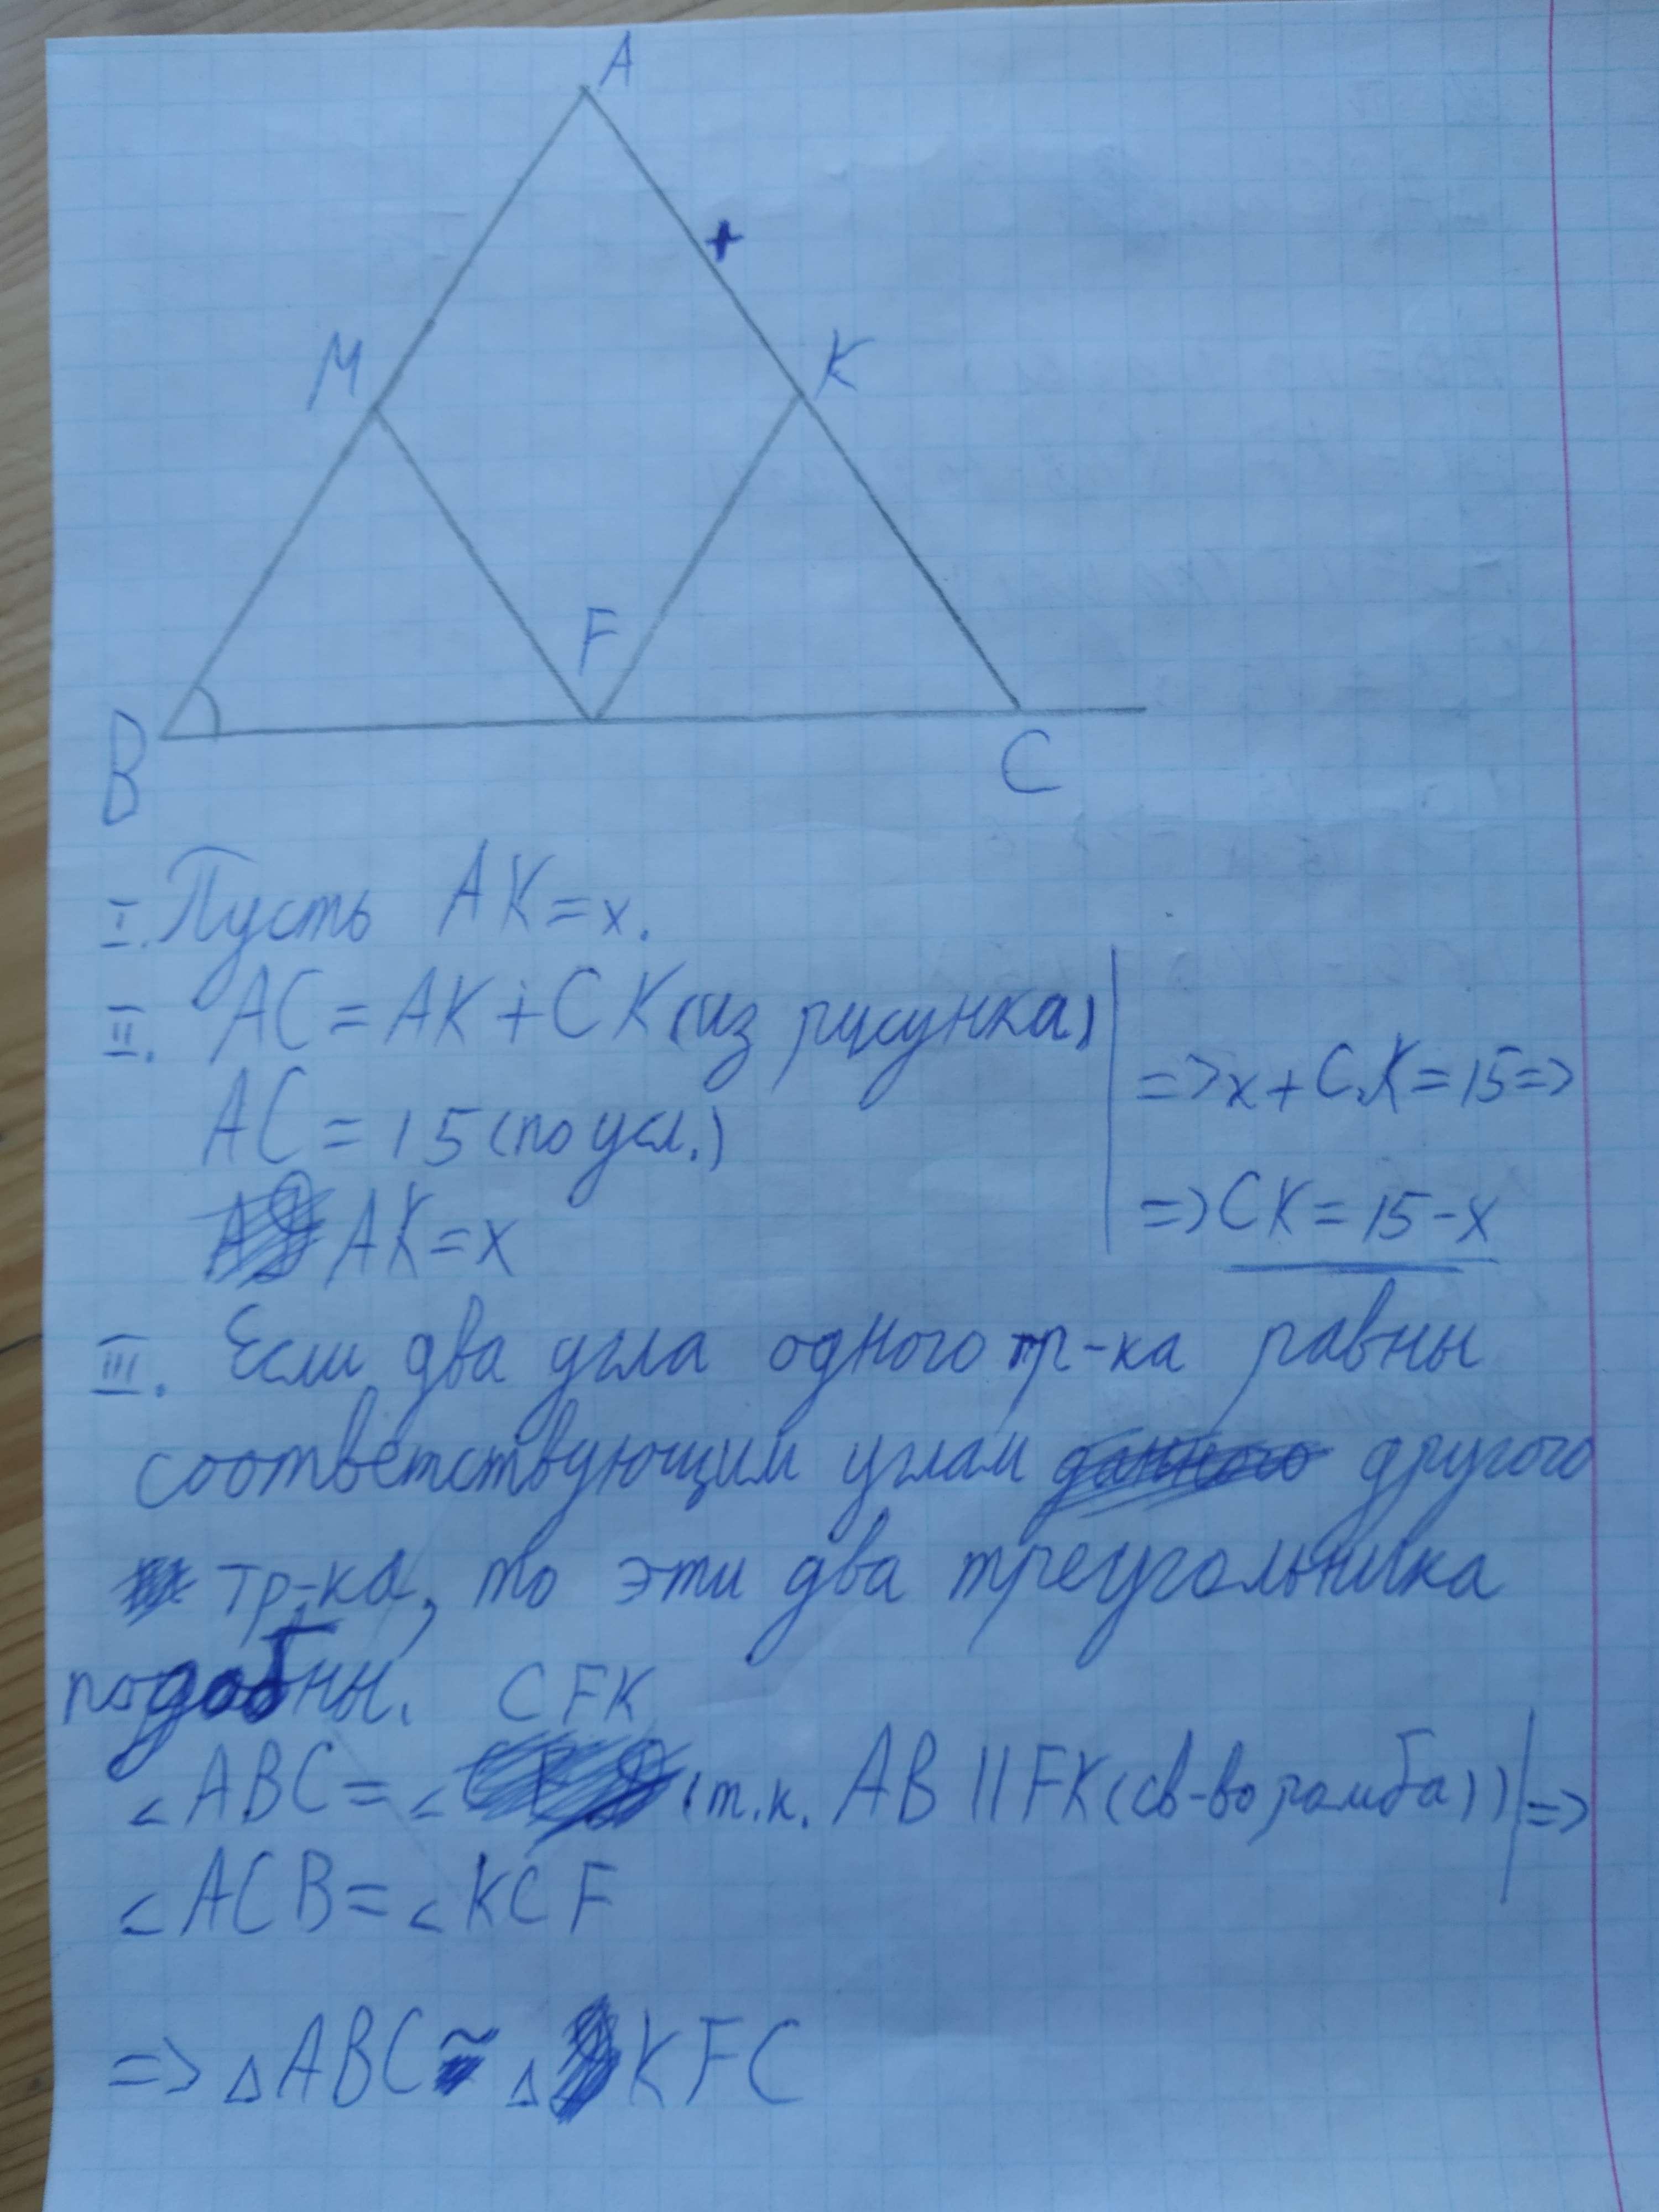 A
M
K
F
B
C
I. Пусть AK=x.
II. AC=AK+CK(из рисунка)
=>x+CK=15=>
AC=15(по усл.)
=>CK=15-x
AK=x
III. Если два угла одного тр-ка равны
соответствующим углам другого
тр-ка, то эти два треугольника
подобны.
CFK
∠ABC=∠ (т.к. AB||FK(св-во ромба)) =>
∠ACB=∠KCF
=> △ABC ~ △KFC